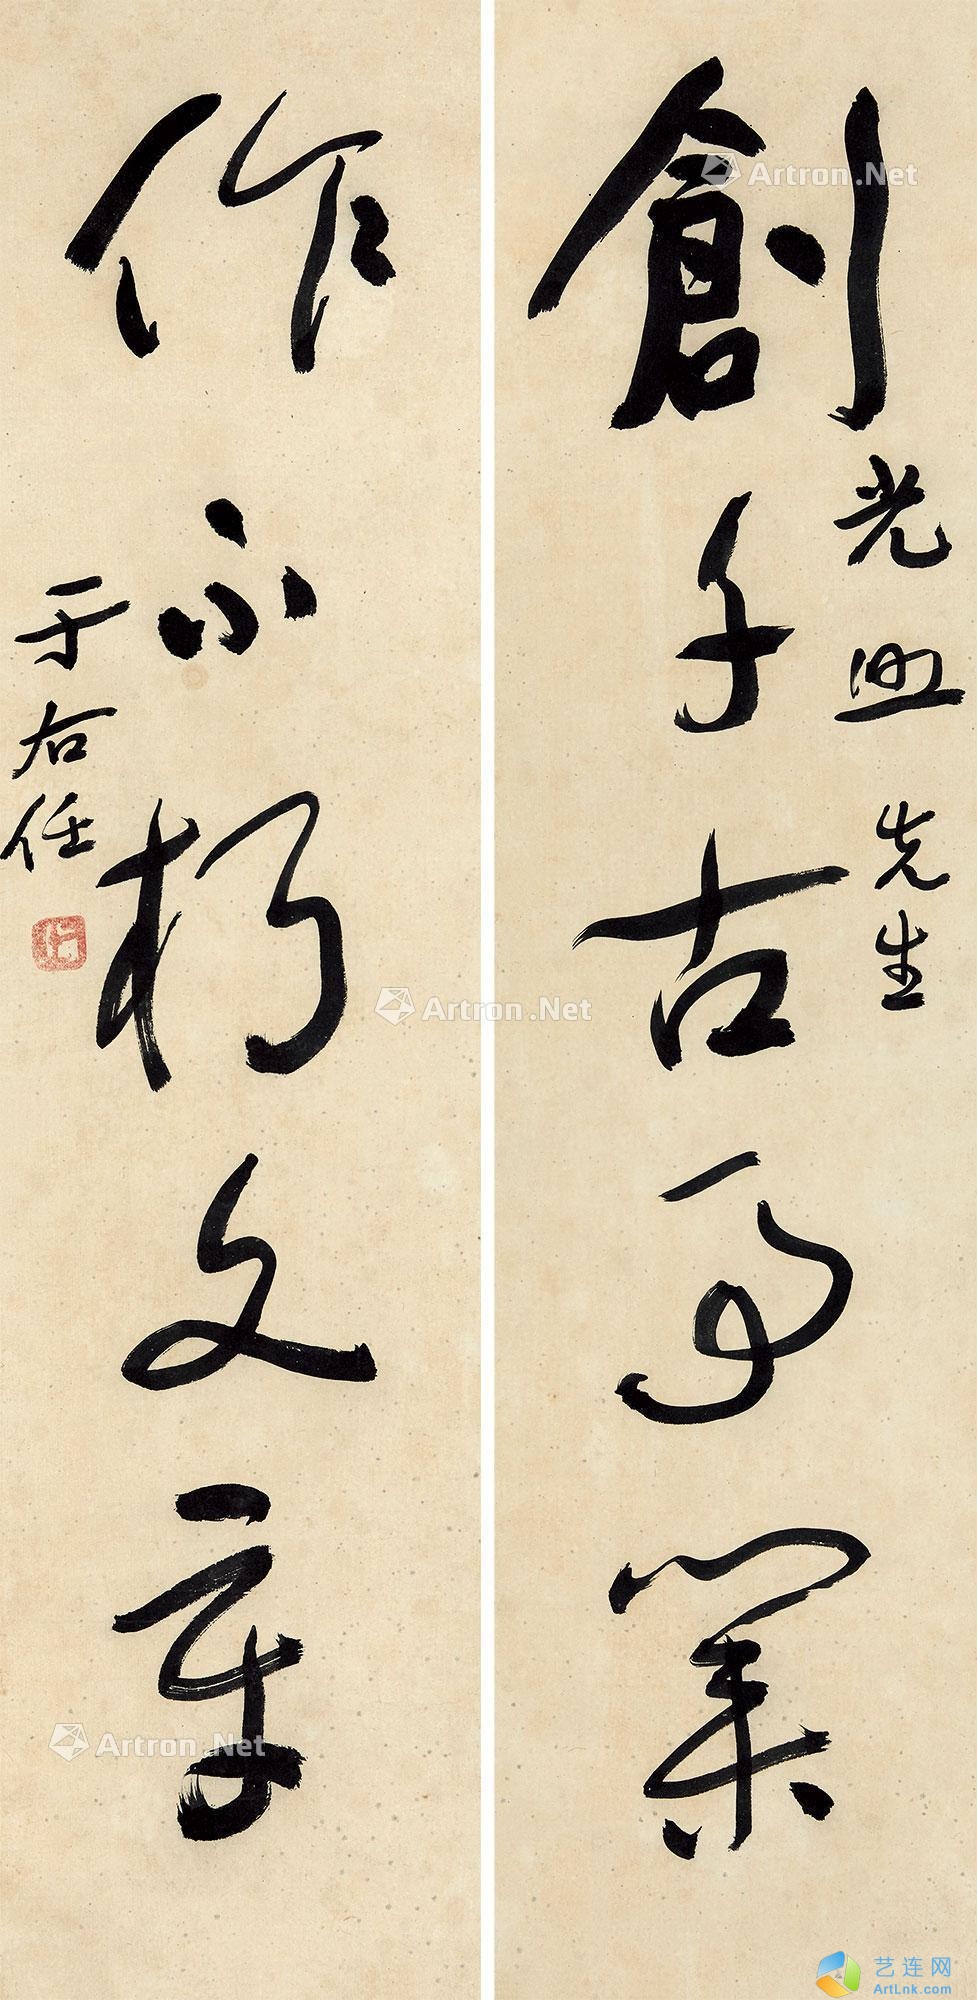 創千古事業
光
先生
作不朽文章
于右任
Artron.Net
Artron.Net
Artron.Net
艺连网
ArtLnk.com